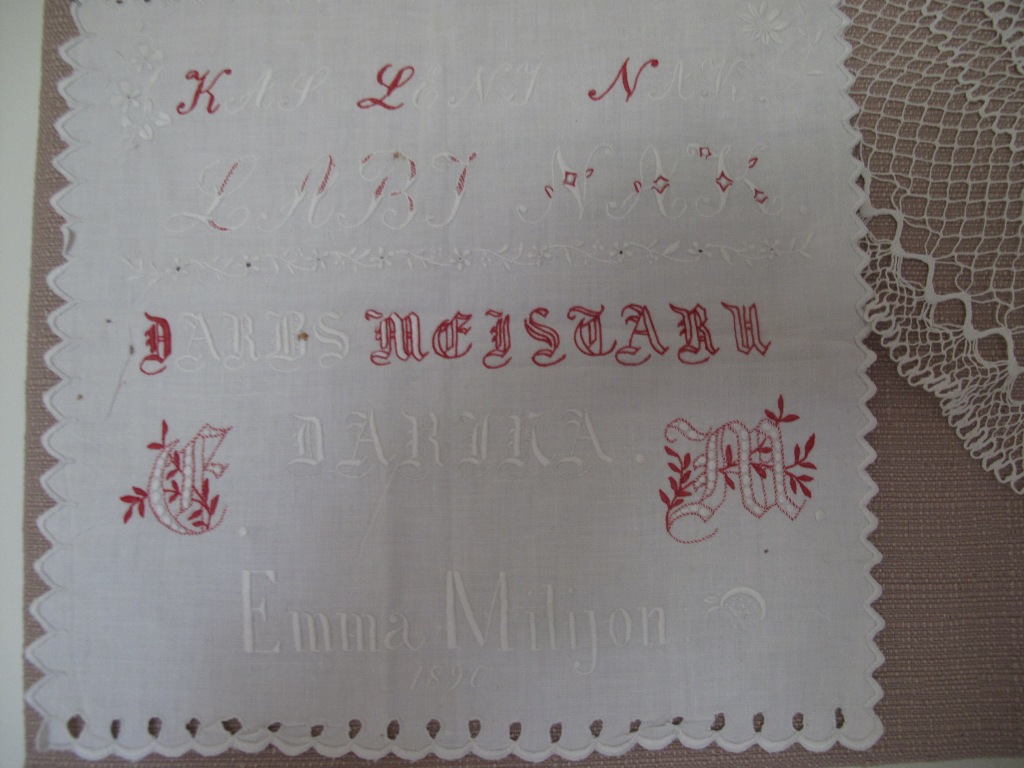 KAS LENI NĀK.
LABI NĀK.
DARBS MEISTARU
DARINA.
E. M.
Emma Milijon.